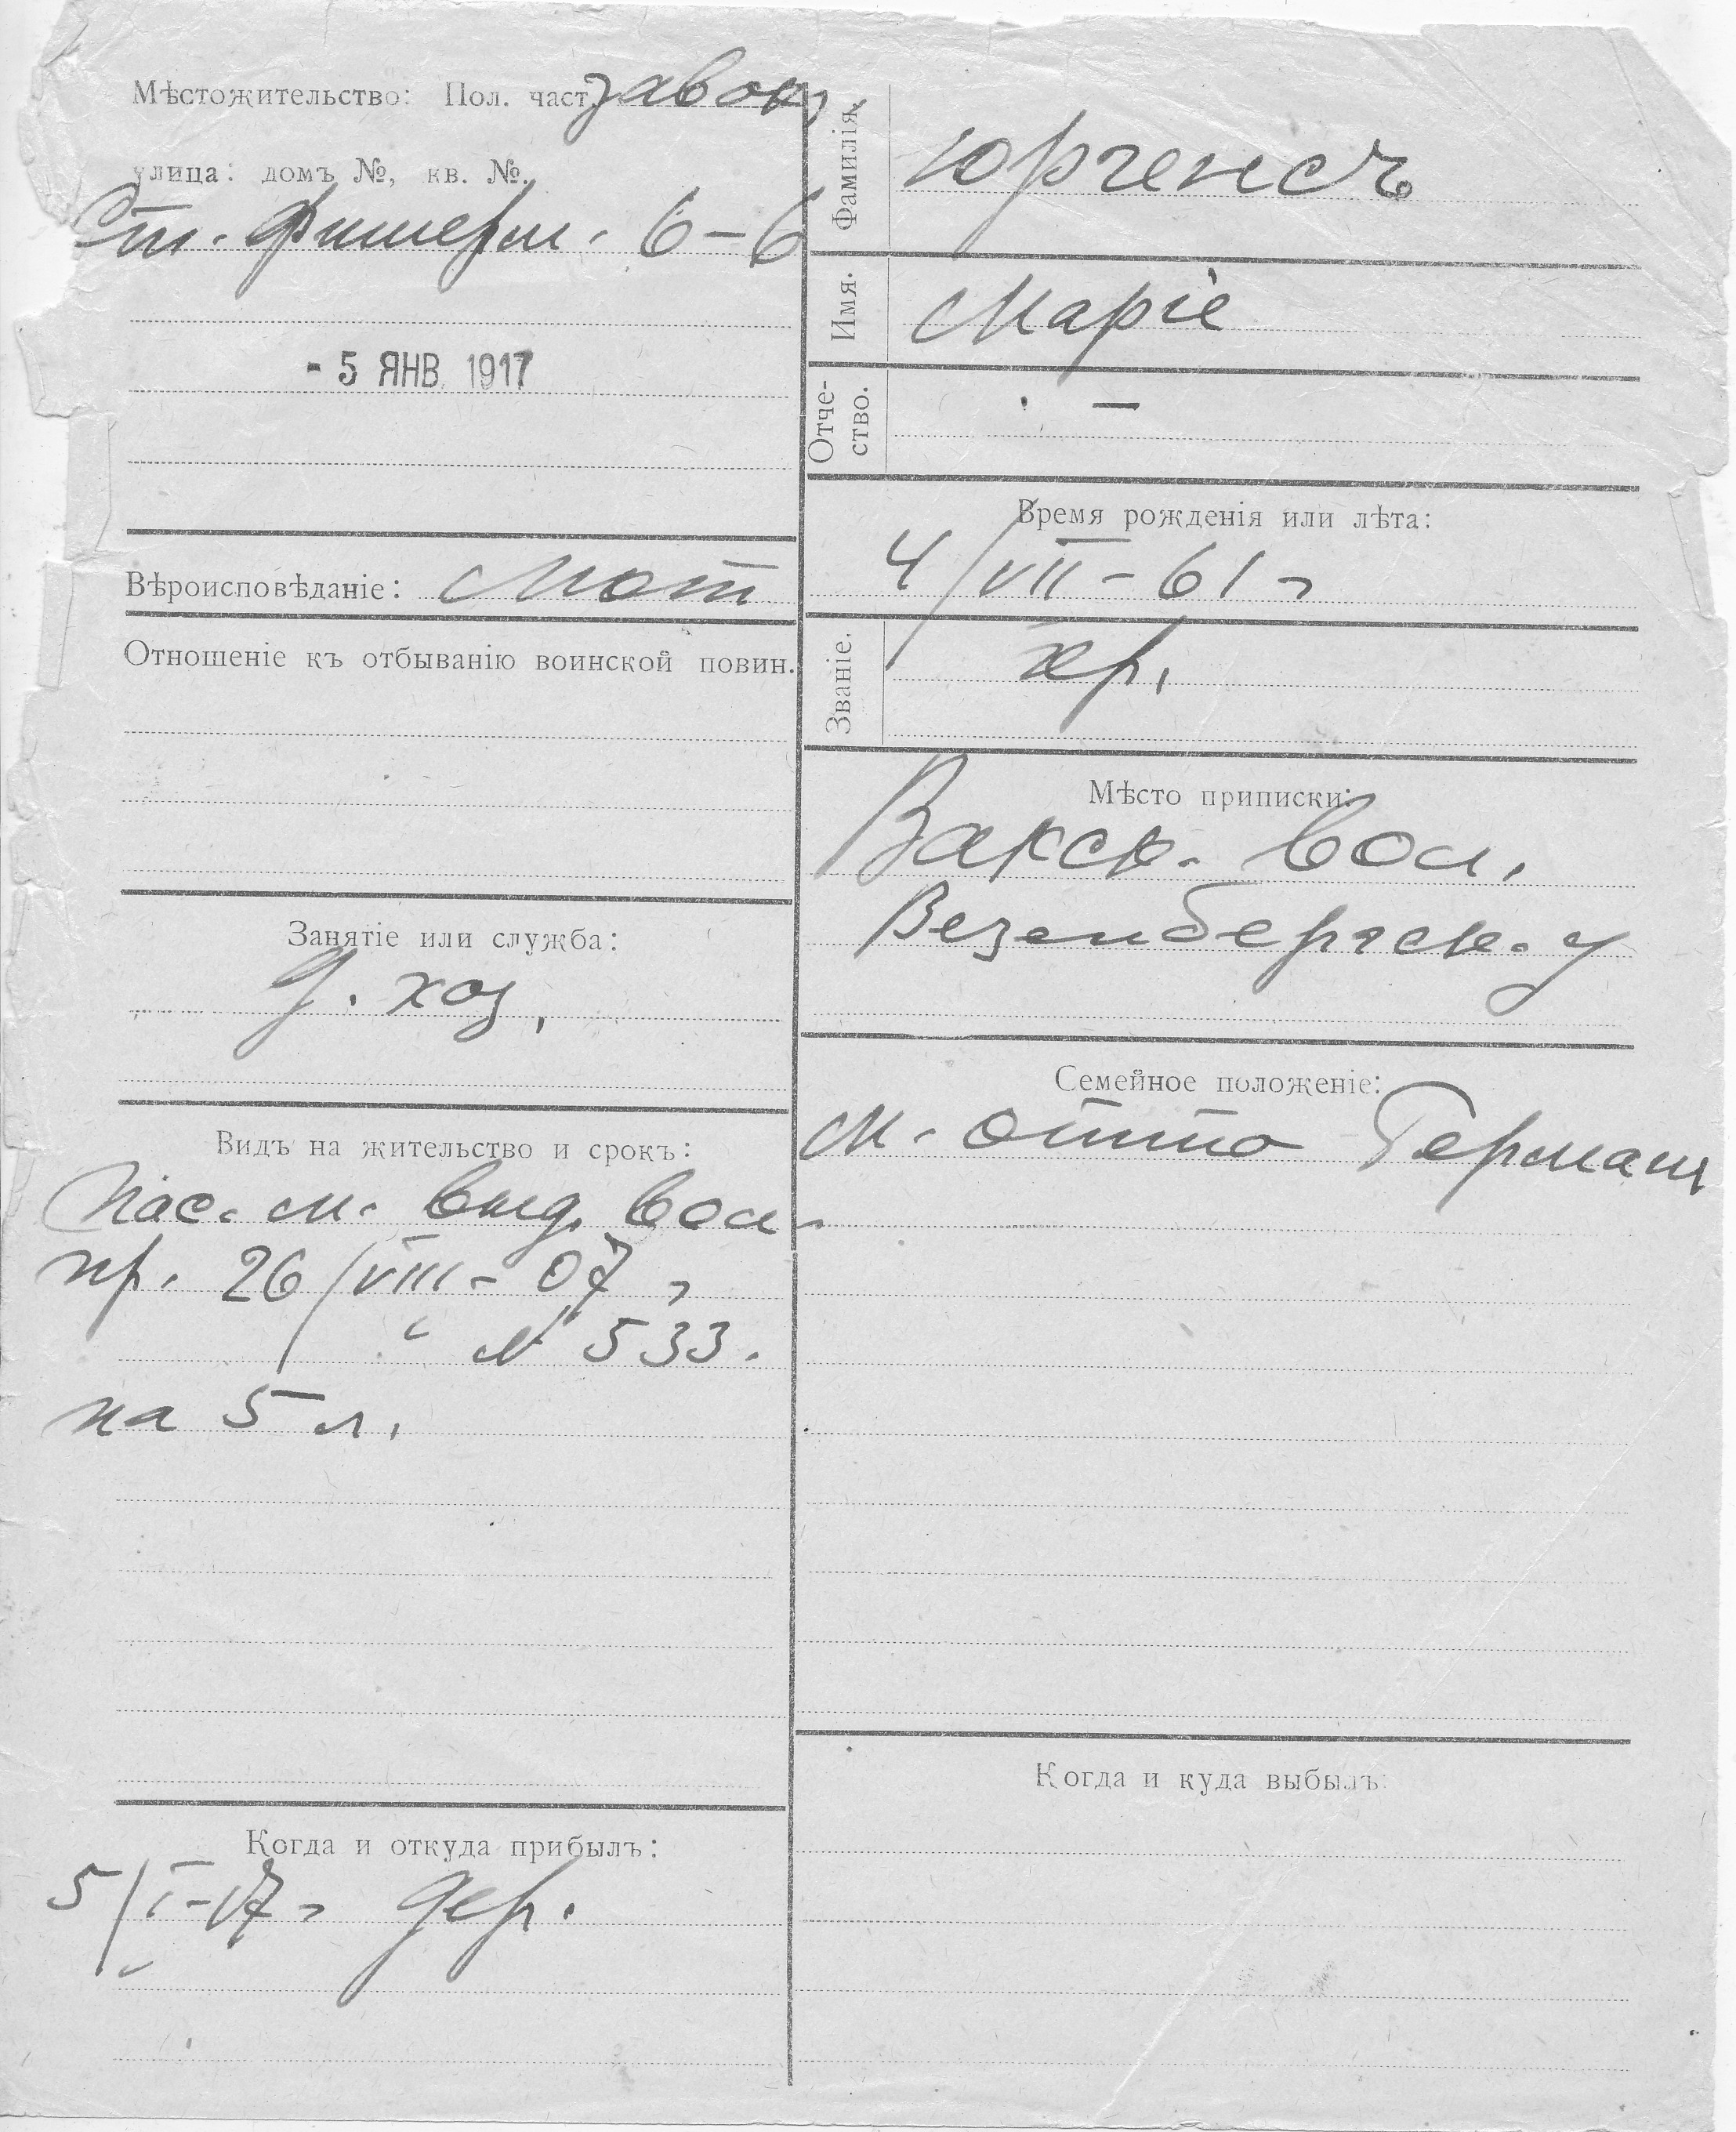 Мѣстожительство: Пол. част. завок,
улица: домъ №, кв. №.
Ст. Фишерм. 6-6
- 5 ЯНВ. 1917
Вѣроисповѣданіе: Лют
Отношеніе къ отбыванію воинской повин.
Занятіе или служба:
д. хоз,
Видъ на жительство и срокъ:
Пас. м. выд. вол.
пр. 26/VIII - 07 г
№ 533.
на 5 л.
Когда и откуда прибылъ:
5/I-17 г дер.
Фамилія.
Юргенсъ
Имя.
Маріе
Отче-
ство.
—
Время рожденія или лѣта:
4/VII - 61 г
Званіе.
кр.
Мѣсто приписки:
Вакск. вол.
Везенбергск. у
Семейное положеніе:
м. Отто Герман
Когда и куда выбылъ: